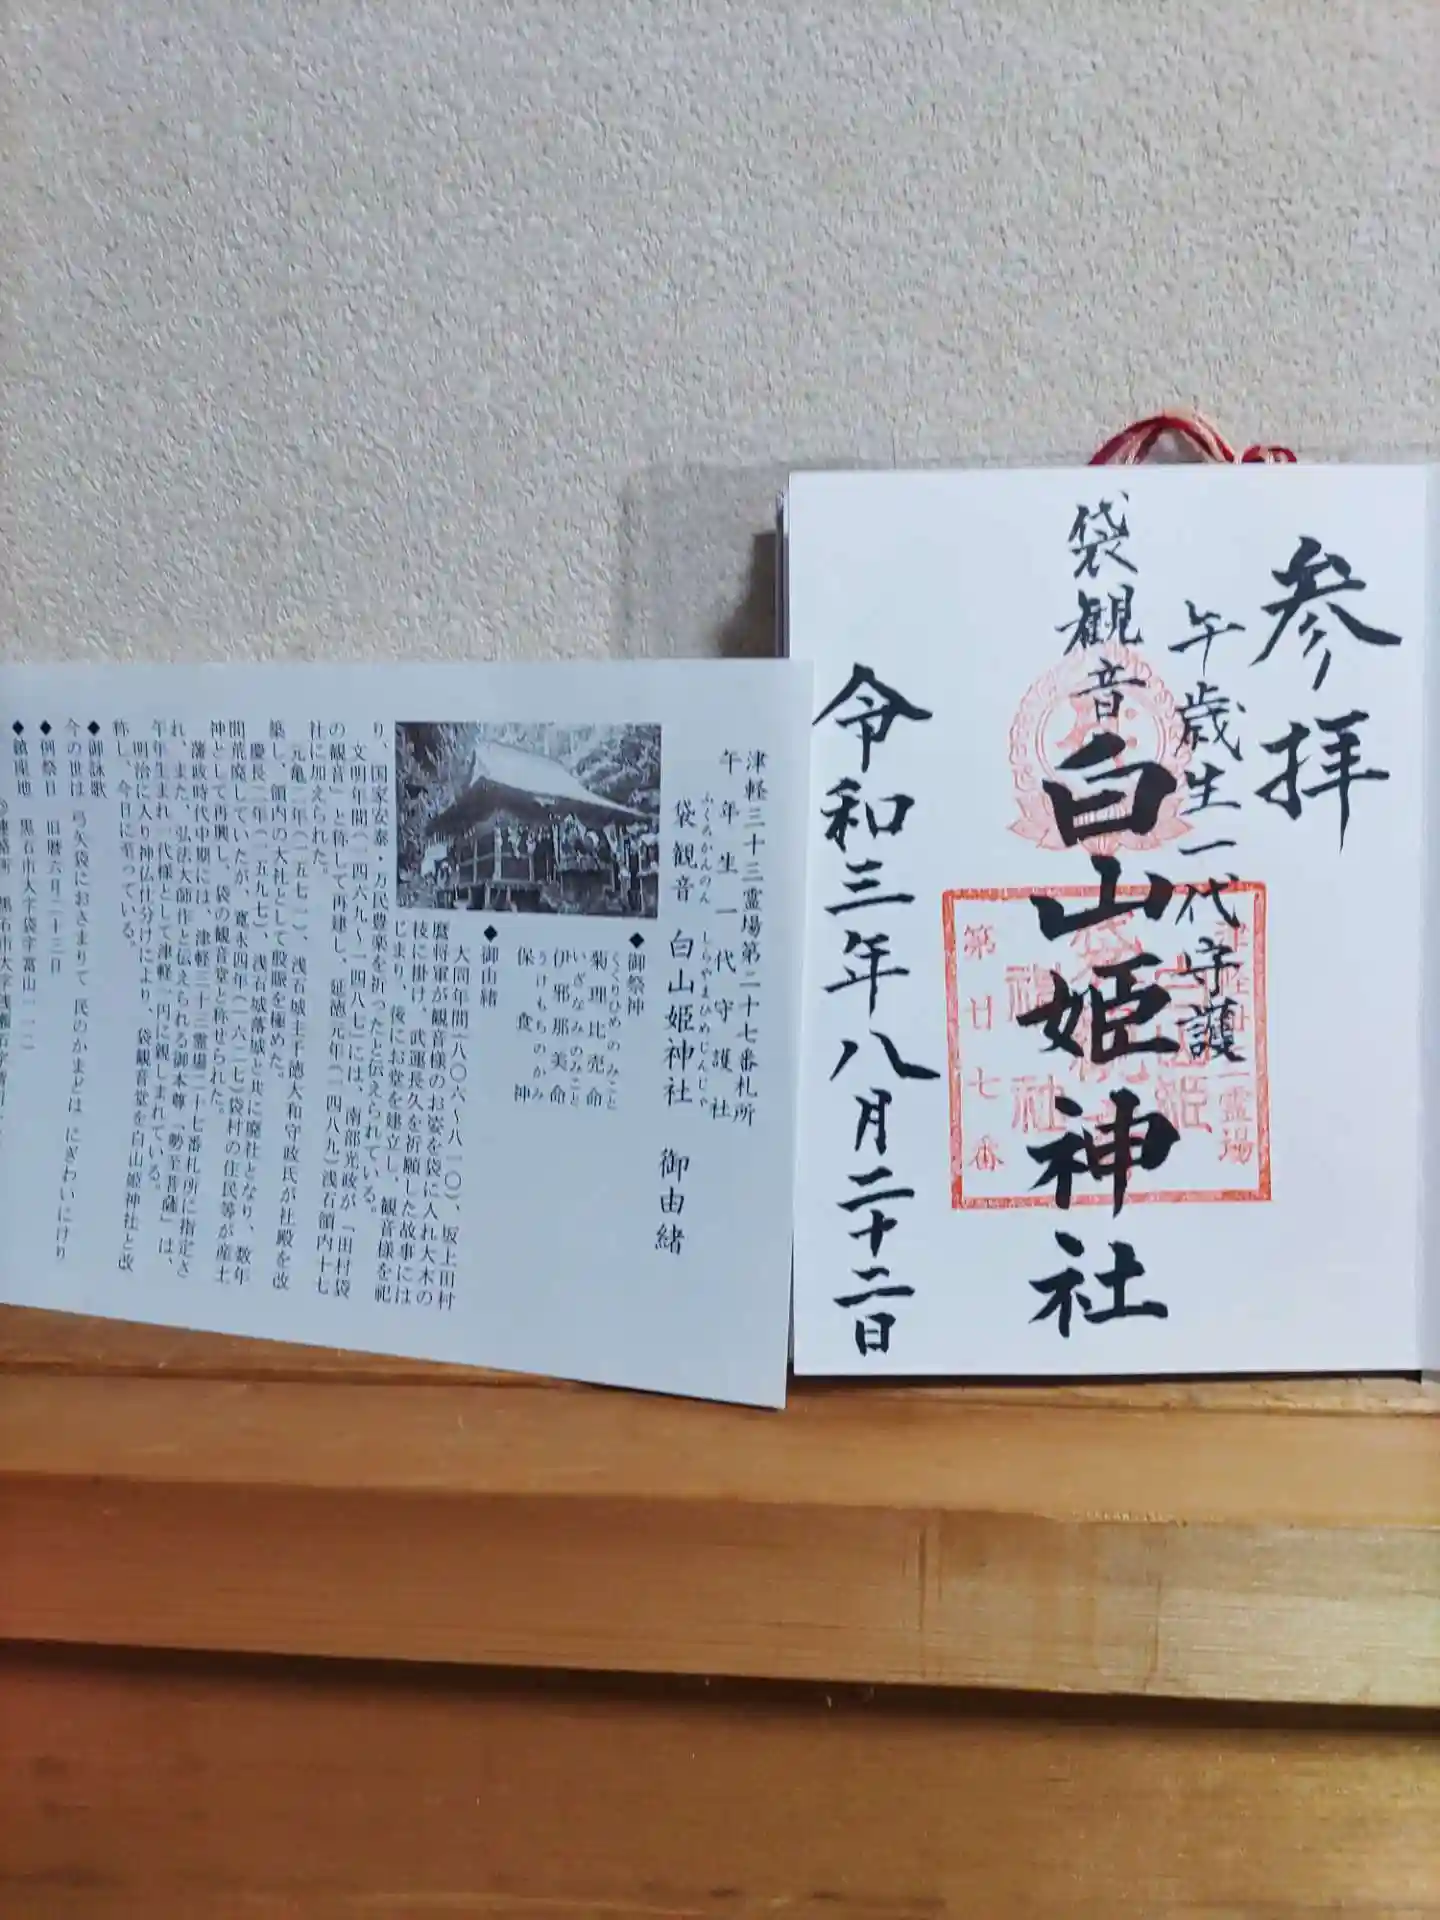 参拝
午歳生一代守護
袋観音白山姫神社
令和三年八月二十二日
第廿七番
霊場
津軽三十三霊場第二十七番札所
午年生一代守護社
ふくろかんのん しらやまひめじんじゃ
袋観音 白山姫神社 御由緒
◆御祭神
くくりひめのみこと
菊理比売命
いざなみのみこと
伊邪那美命
うけもちのかみ
保食神
◆御由緒
大同年間(八〇六〜八一〇)、坂上田村
麿将軍が観音様のお姿を袋に入れ大木の
枝に掛け、武運長久を祈願した故事には
じまり、後にお堂を建立し、観音様を祀
り、国家安泰・万民豊楽を祈ったと伝えられている。
文明年間(一四六九〜一四八七)には、南部光政が、「田村袋
の観音」と称して再建し、延徳元年(一四八九)浅石領内十七
社に加えられた。
元亀二年(一五七一)、浅石城主千徳大和守政氏が社殿を改
築し、領内の大社として殷賑を極めた。
慶長二年(一五九七)、浅石城落城と共に廃社となり、数年
間荒廃していたが、寛永四年(一六二七)袋村の住民等が産土
神として再興し、袋の観音堂と称せられた。
藩政時代中期には、津軽三十三霊場二十七番札所に指定さ
れ、また、弘法大師作と伝えられる御本尊「勢至菩薩」は、
午年生まれ一代様として津軽一円に親しまれている。
明治に入り神仏仕分けにより、袋観音堂を白山姫神社と改
称し、今日に至っている。
◆御詠歌
今の世は 弓矢袋におさまりて 民のかまどは にぎわいにけり
◆例祭日 旧暦六月二十三日
◆鎮座地 黒石市大字袋字富山一一二